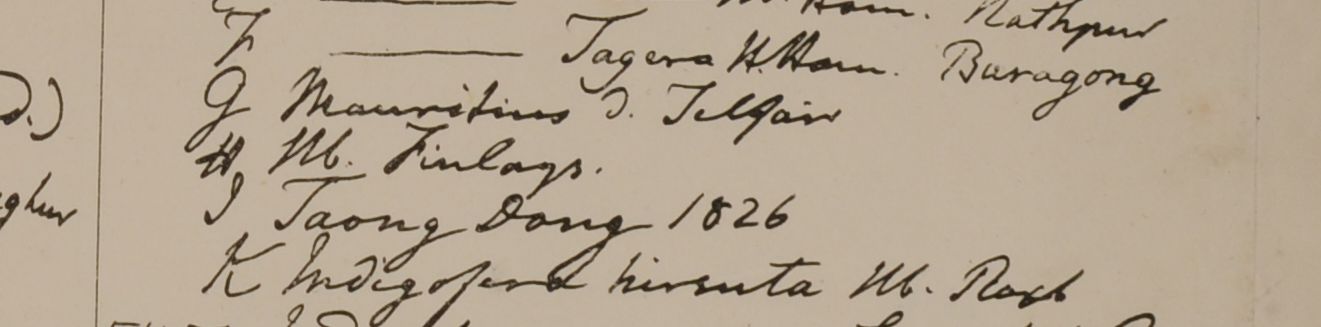 H. Ham. Nathpur
F ——— Tagera H. Ham. Buragong
d.) G Mauritius d. Telfair
H, Hb. Finlays.
ghur I Taong Dong 1826
K Indigofera hirsuta Hb. Roxb